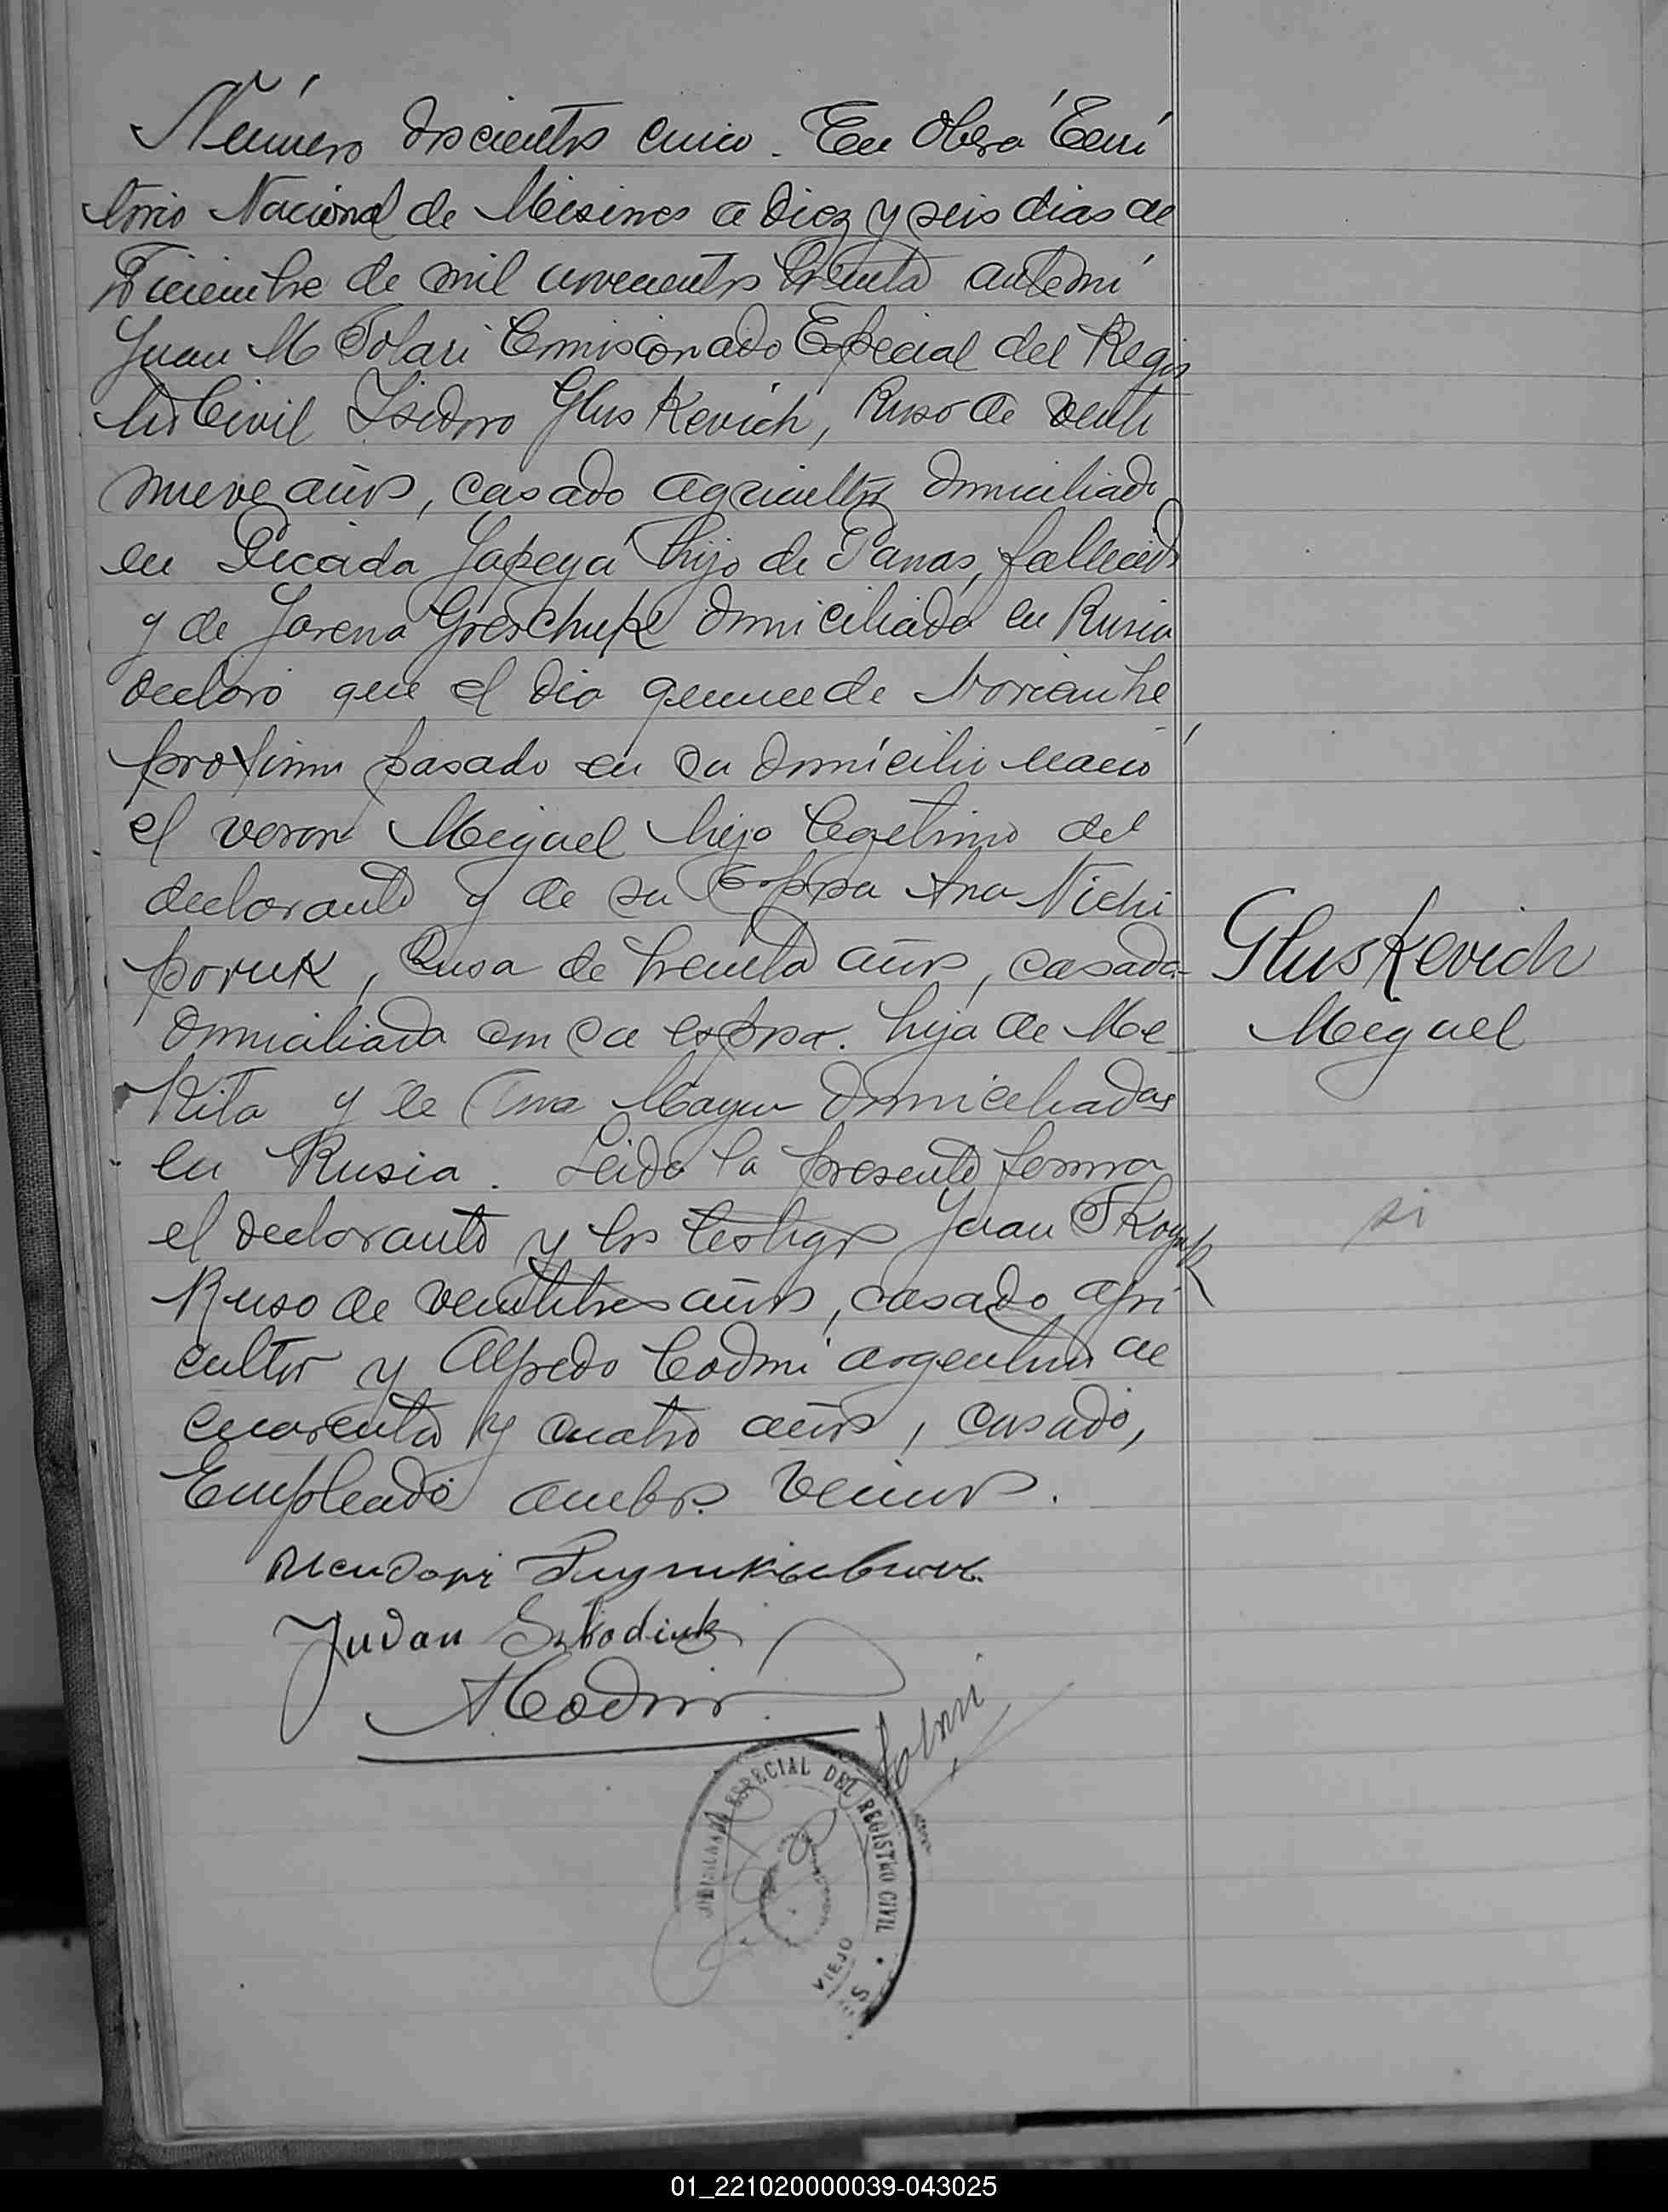 Número doscientos cinco. En Oberá Terri
torio Nacional de Misiones a diez y seis dias de
Diciembre de mil novecientos treinta ante mi
Juan M Solari Comisionado Especial del Regis
tro Civil Isidoro Gluskevich, Ruso de veinti
nueve años, casado agricultor domiciliado
en Picada Yapeyú hijo de Panas, fallecido
y de Jarena Greschuke domiciliada en Rusia
declaró que el dia quince de Noviembre
proximo pasado en su domicilio nació
el varon Miguel hijo legitimo del
declarante y de su esposa Ana Nichi
poruk, Rusa de treinta años, casada
domiciliada con su esposo. hija de Me
Kita y de Ana domiciliadas
en Rusia. Leida la presente forma
el declarante y los testigos Juan
Ruso de veintitres años, casado, agri
cultor y Alfredo Codmi argentino de
cuarenta y cuatro años, casado,
Empleado ambos vecinos.
Gluskevich
Miguel
si
Juvan
ACodmi
Solari
ESPECIAL DEL REGISTRO CIVIL
VIEJO
01_221020000039-043025